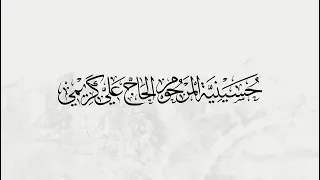 حُسَيْنِيَّةُ المَرْحُومِ الحَاجّ عَلِيّ كَرِيمِيّ